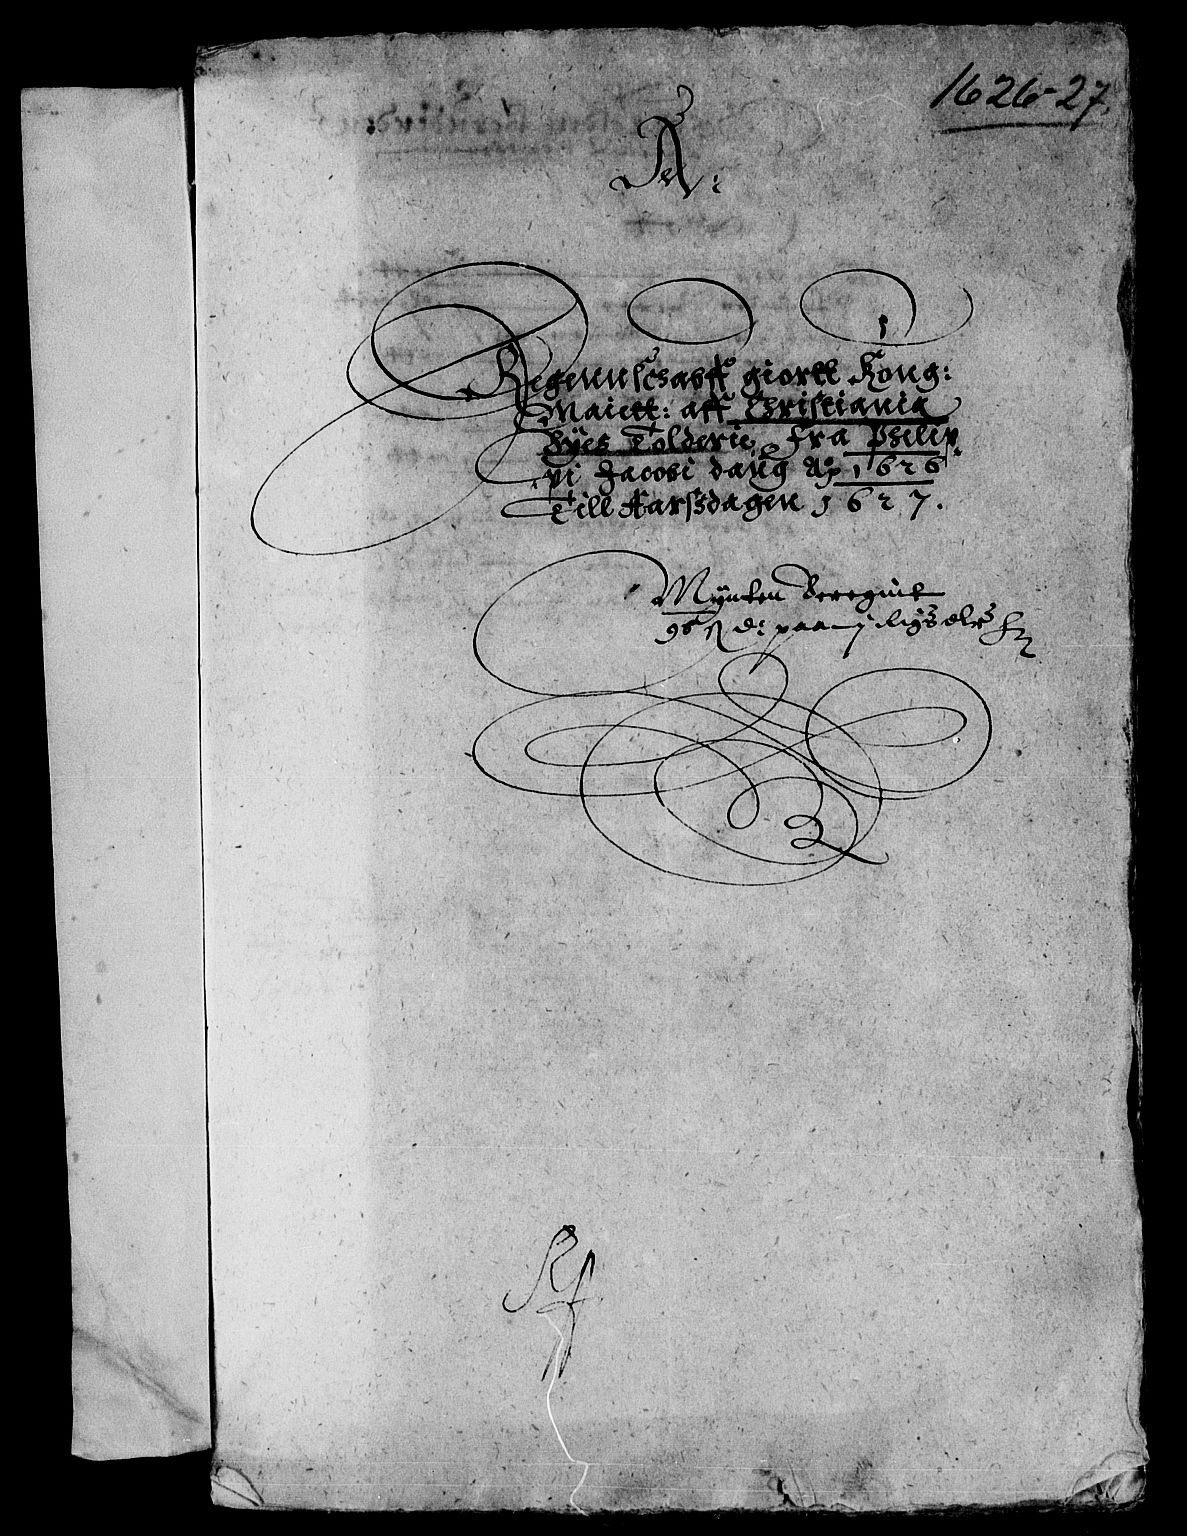 1626-27.
A:
Regennschabff giortt Kong:
Maiett: aff Christiania
Byes Tolderie, fra Philip
pi Jacobi daug Ao 1626.
Till Aarsdagen 1627.
Mynten Beregnit
96 ß d: paa j Rigsdlr